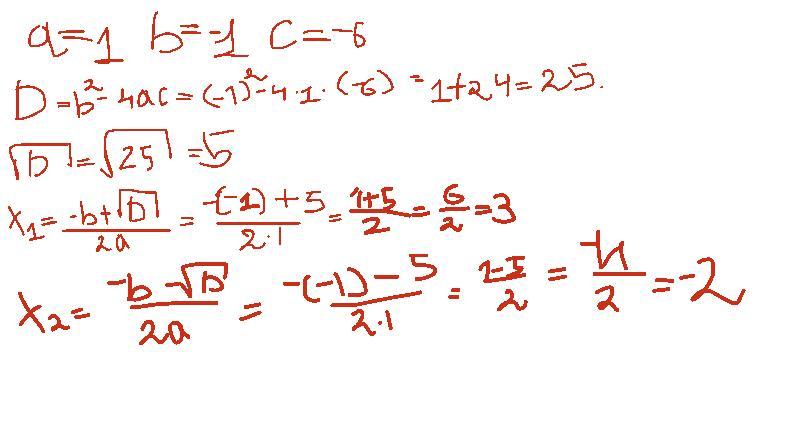 a=1 b=-1 c=-6
D=b²-4ac=(-1)²-4·1·(-6)=1+24=25.
√D=√25=5
x₁=(-b+√D)/2a=(-(-1)+5)/2·1=(1+5)/2=6/2=3
x₂=(-b-√D)/2a=(-(-1)-5)/2·1=(1-5)/2=-4/2=-2